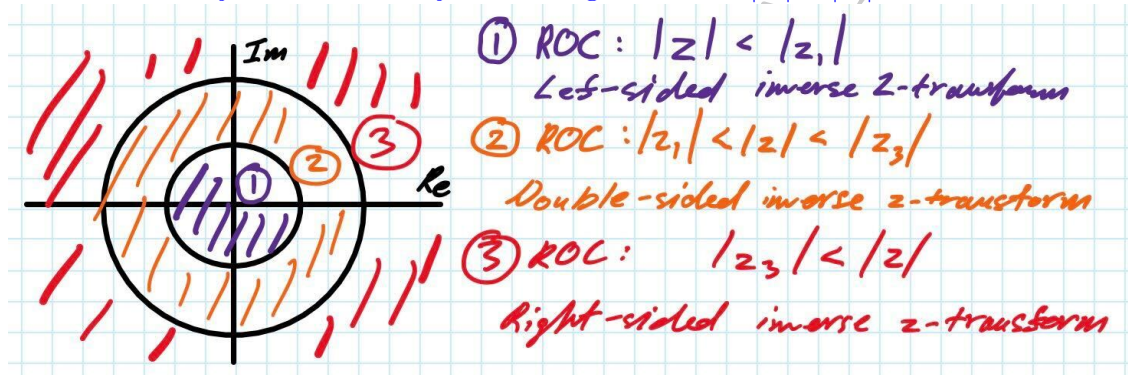 Im
③
②
①
Re
① ROC: |z| < |z₁|
Lef-sided inverse Z-transform
② ROC: |z₁| < |z| < |z₃|
Double-sided inverse z-transform
③ ROC: |z₃| < |z|
Right-sided inverse z-transform